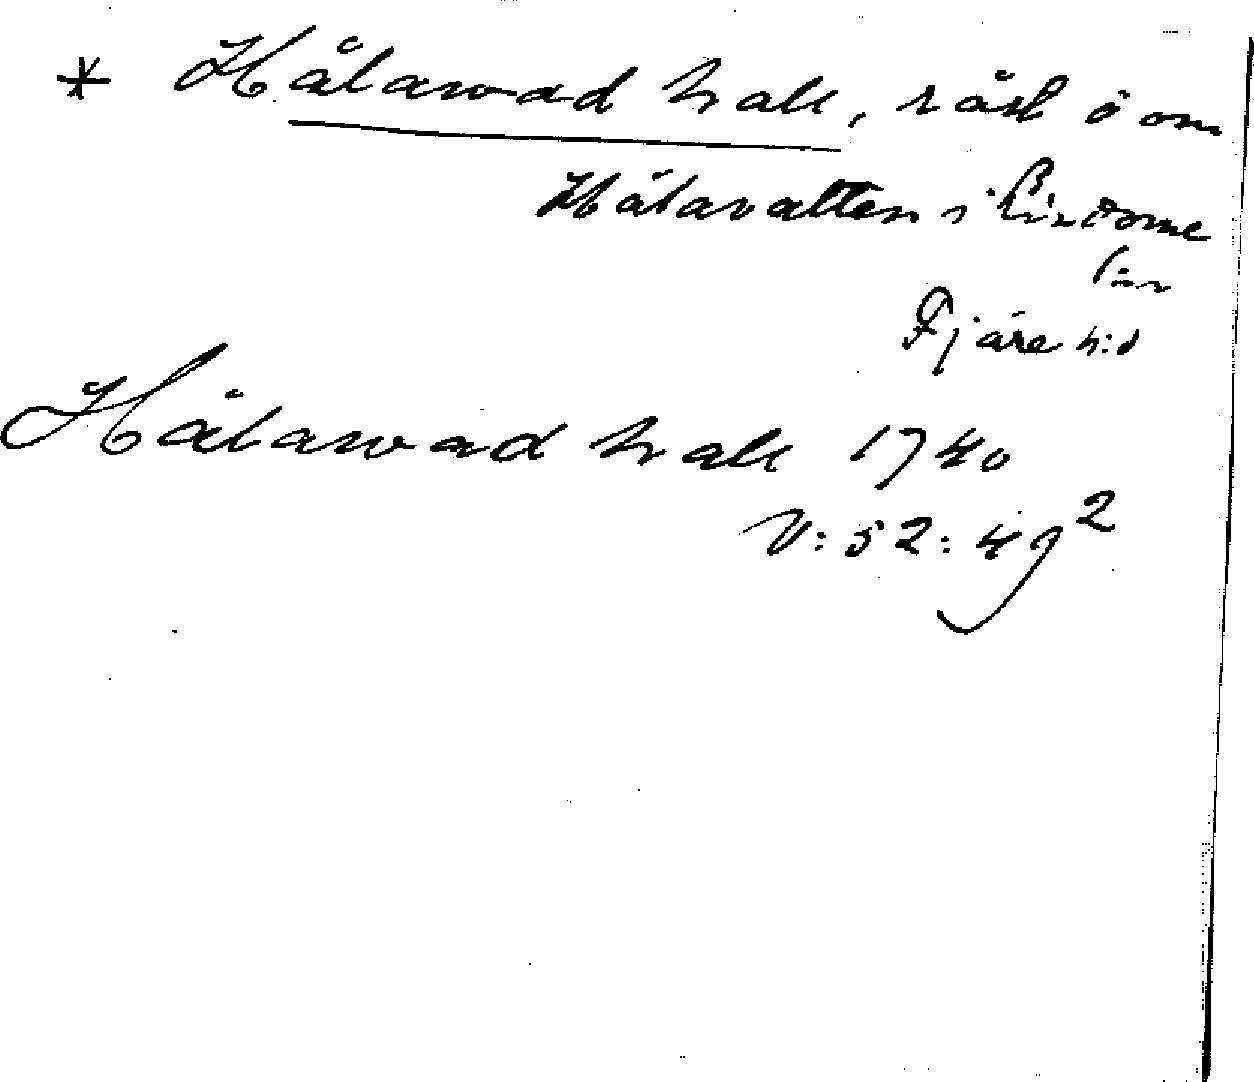 * Hålawad hall, råsl ö om
Hålavatten i Lindome
sn
Fjäre h:d
Hålawad hall 1740
V:52:49²